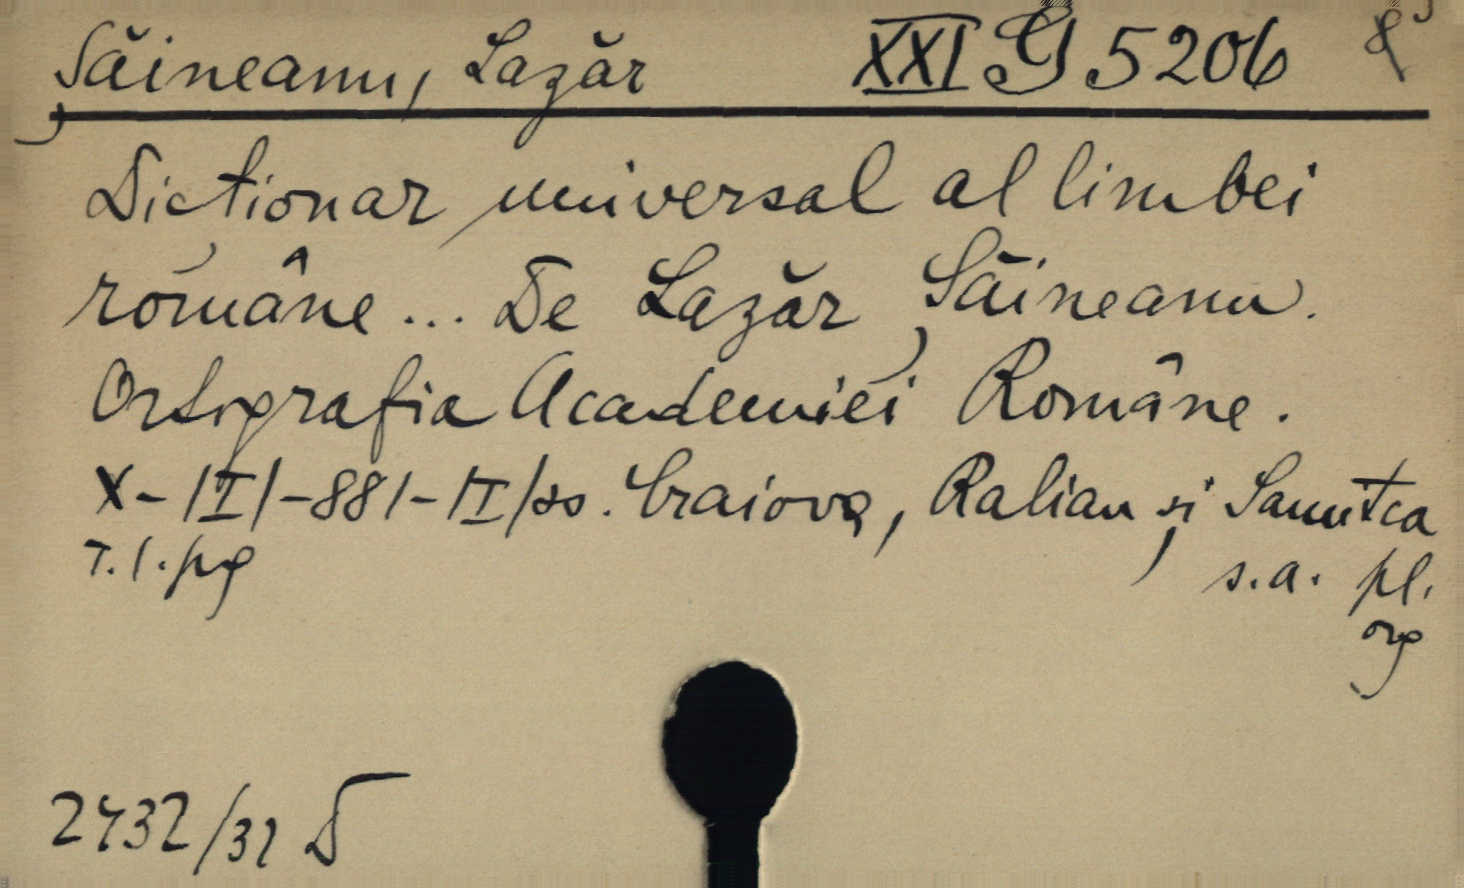 Șăineanu, Lazăr XXI G 5206
Dicționar universal al limbei
române... De Lazăr Șăineanu.
Ortografia Academiei Române.
X-|I|-881-|I|ss. Craiova, Ralian și Samitca
T.1.pg s.a. pl.
org
2432/32 D